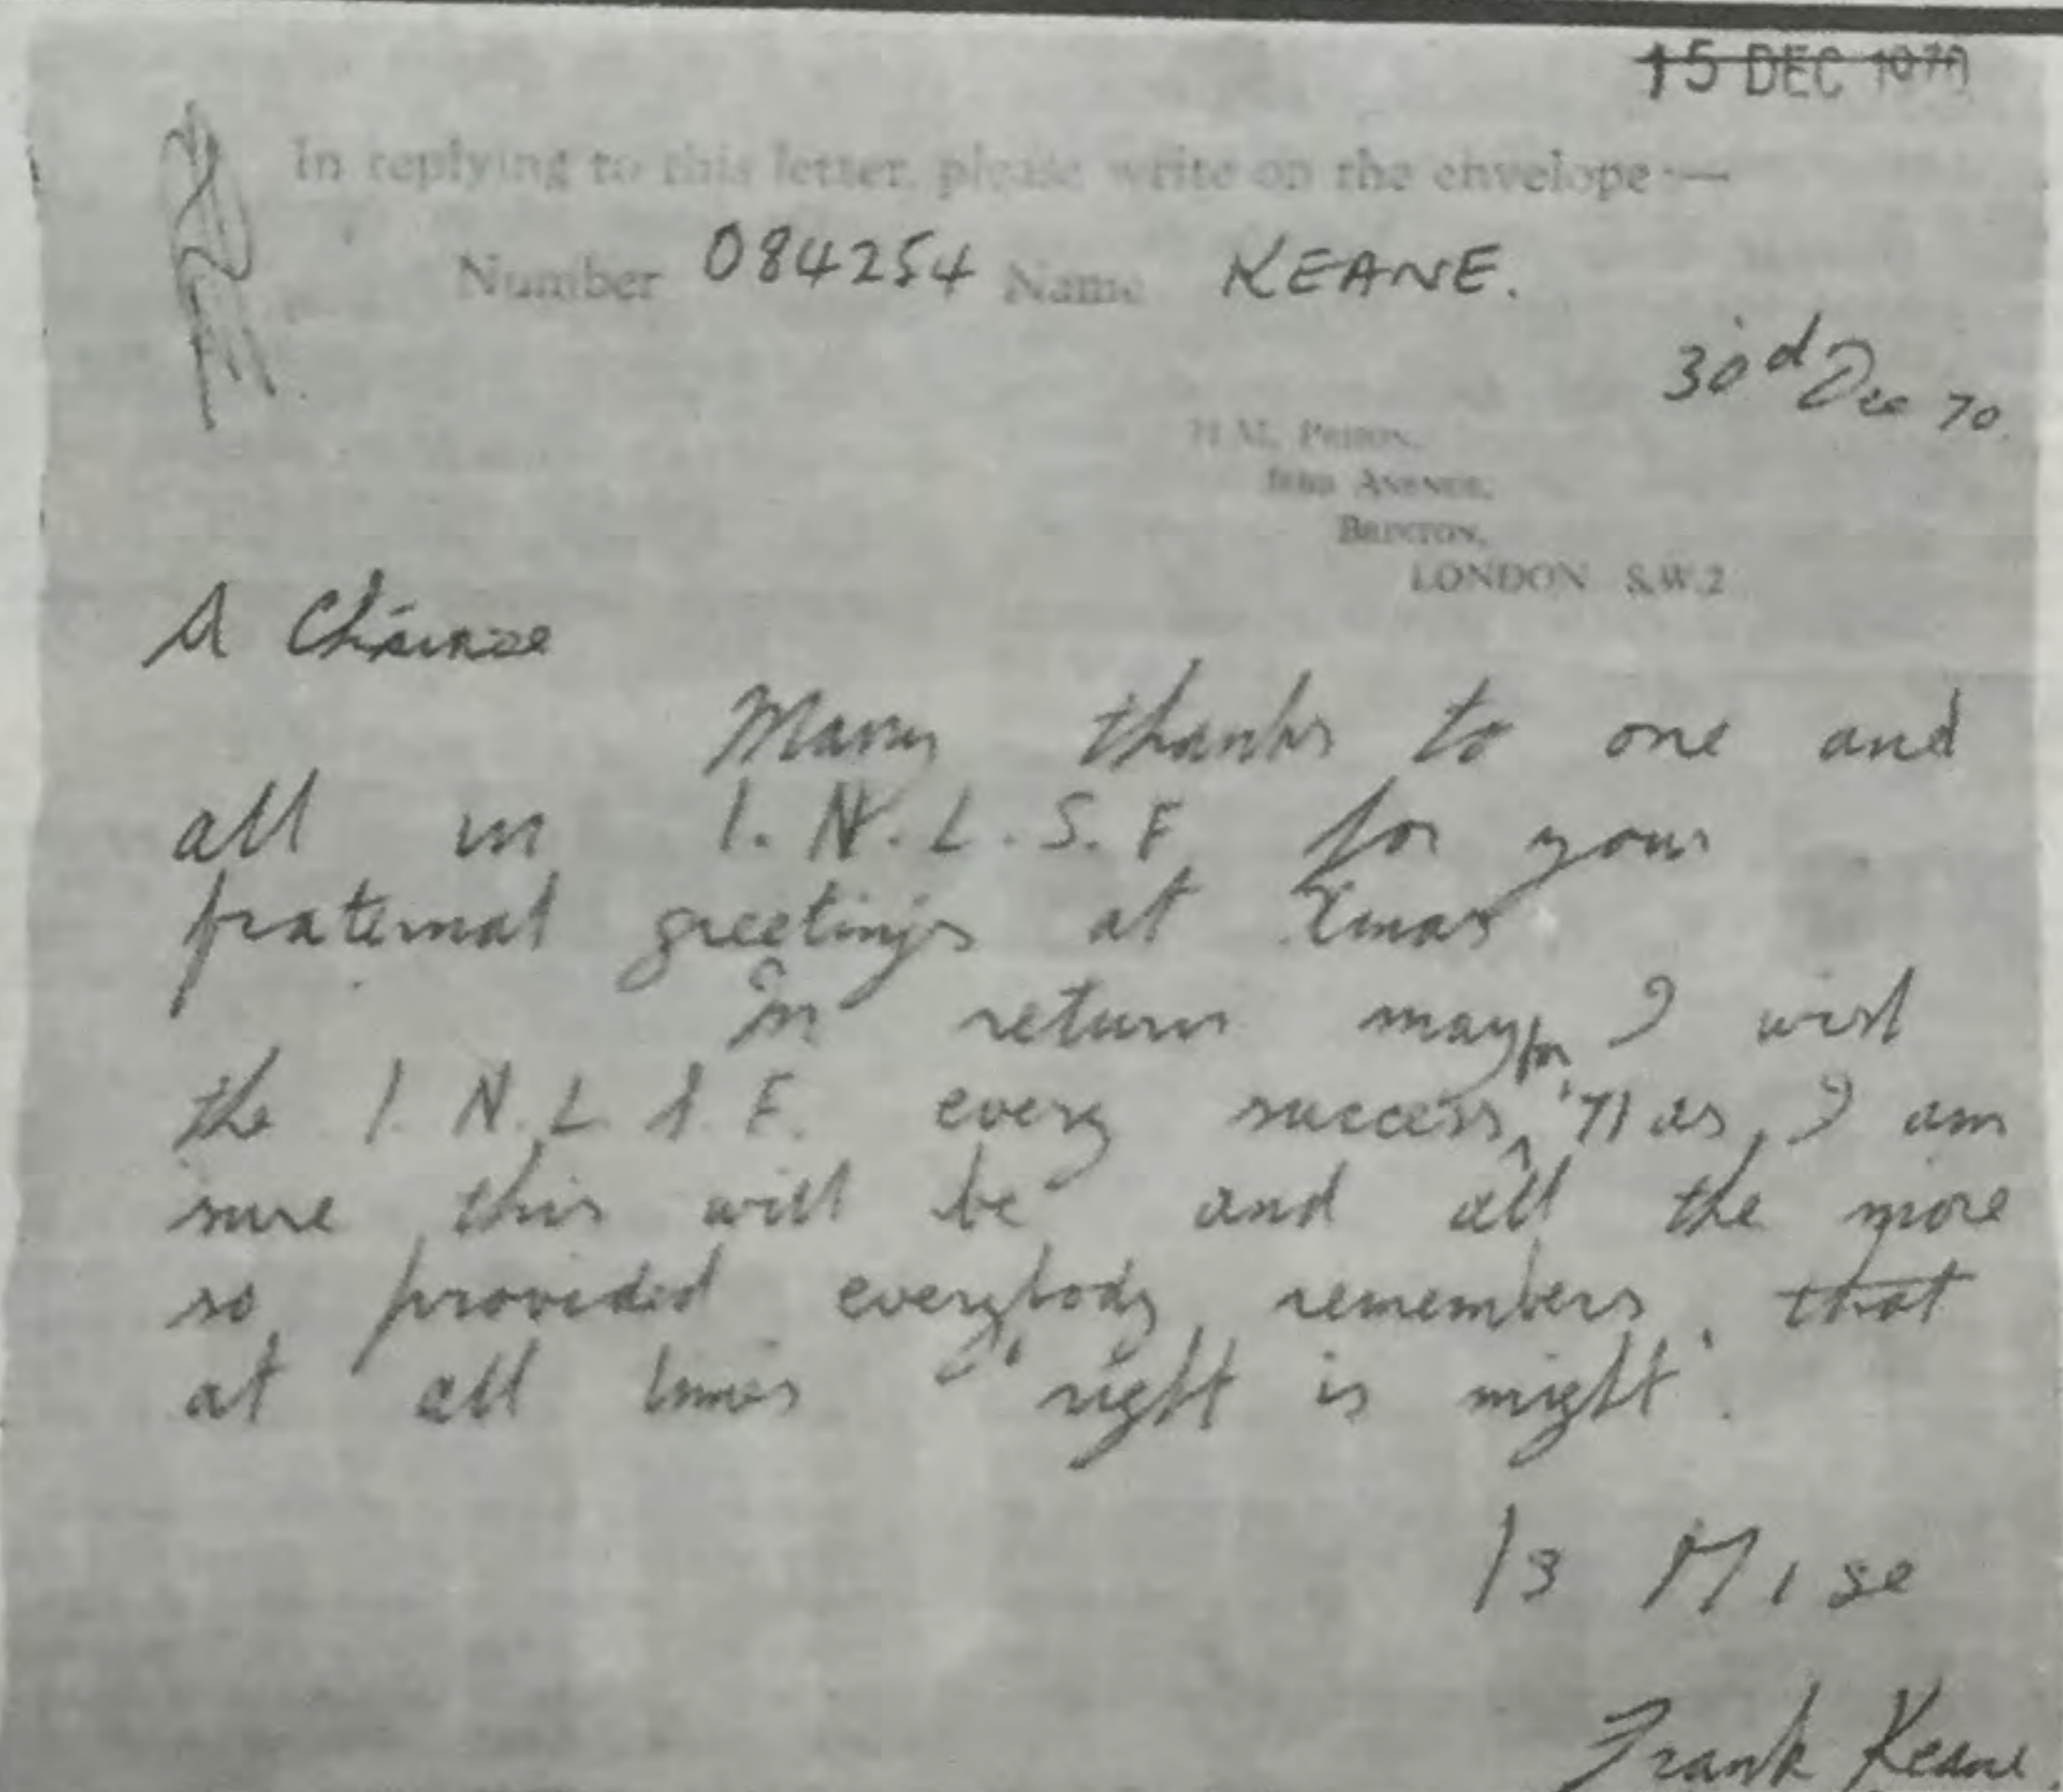 15 DEC 1970
In replying to this letter, please write on the envelope:—
Number 084254 Name KEANE.
30d Dec 70.
H.M. PRISON,
JEBB AVENUE,
BRIXTON,
LONDON S.W.2
A Cháirde
Many thanks to one and
all in I.N.L.S.F. for your
fraternal greetings at Xmas
In return may I wish
the I.N.L.S.F. every success for '71 as, I am
sure this will be and all the more
so, provided everybody remembers, that
at all times "right is might".
Is Mise
Frank Keane